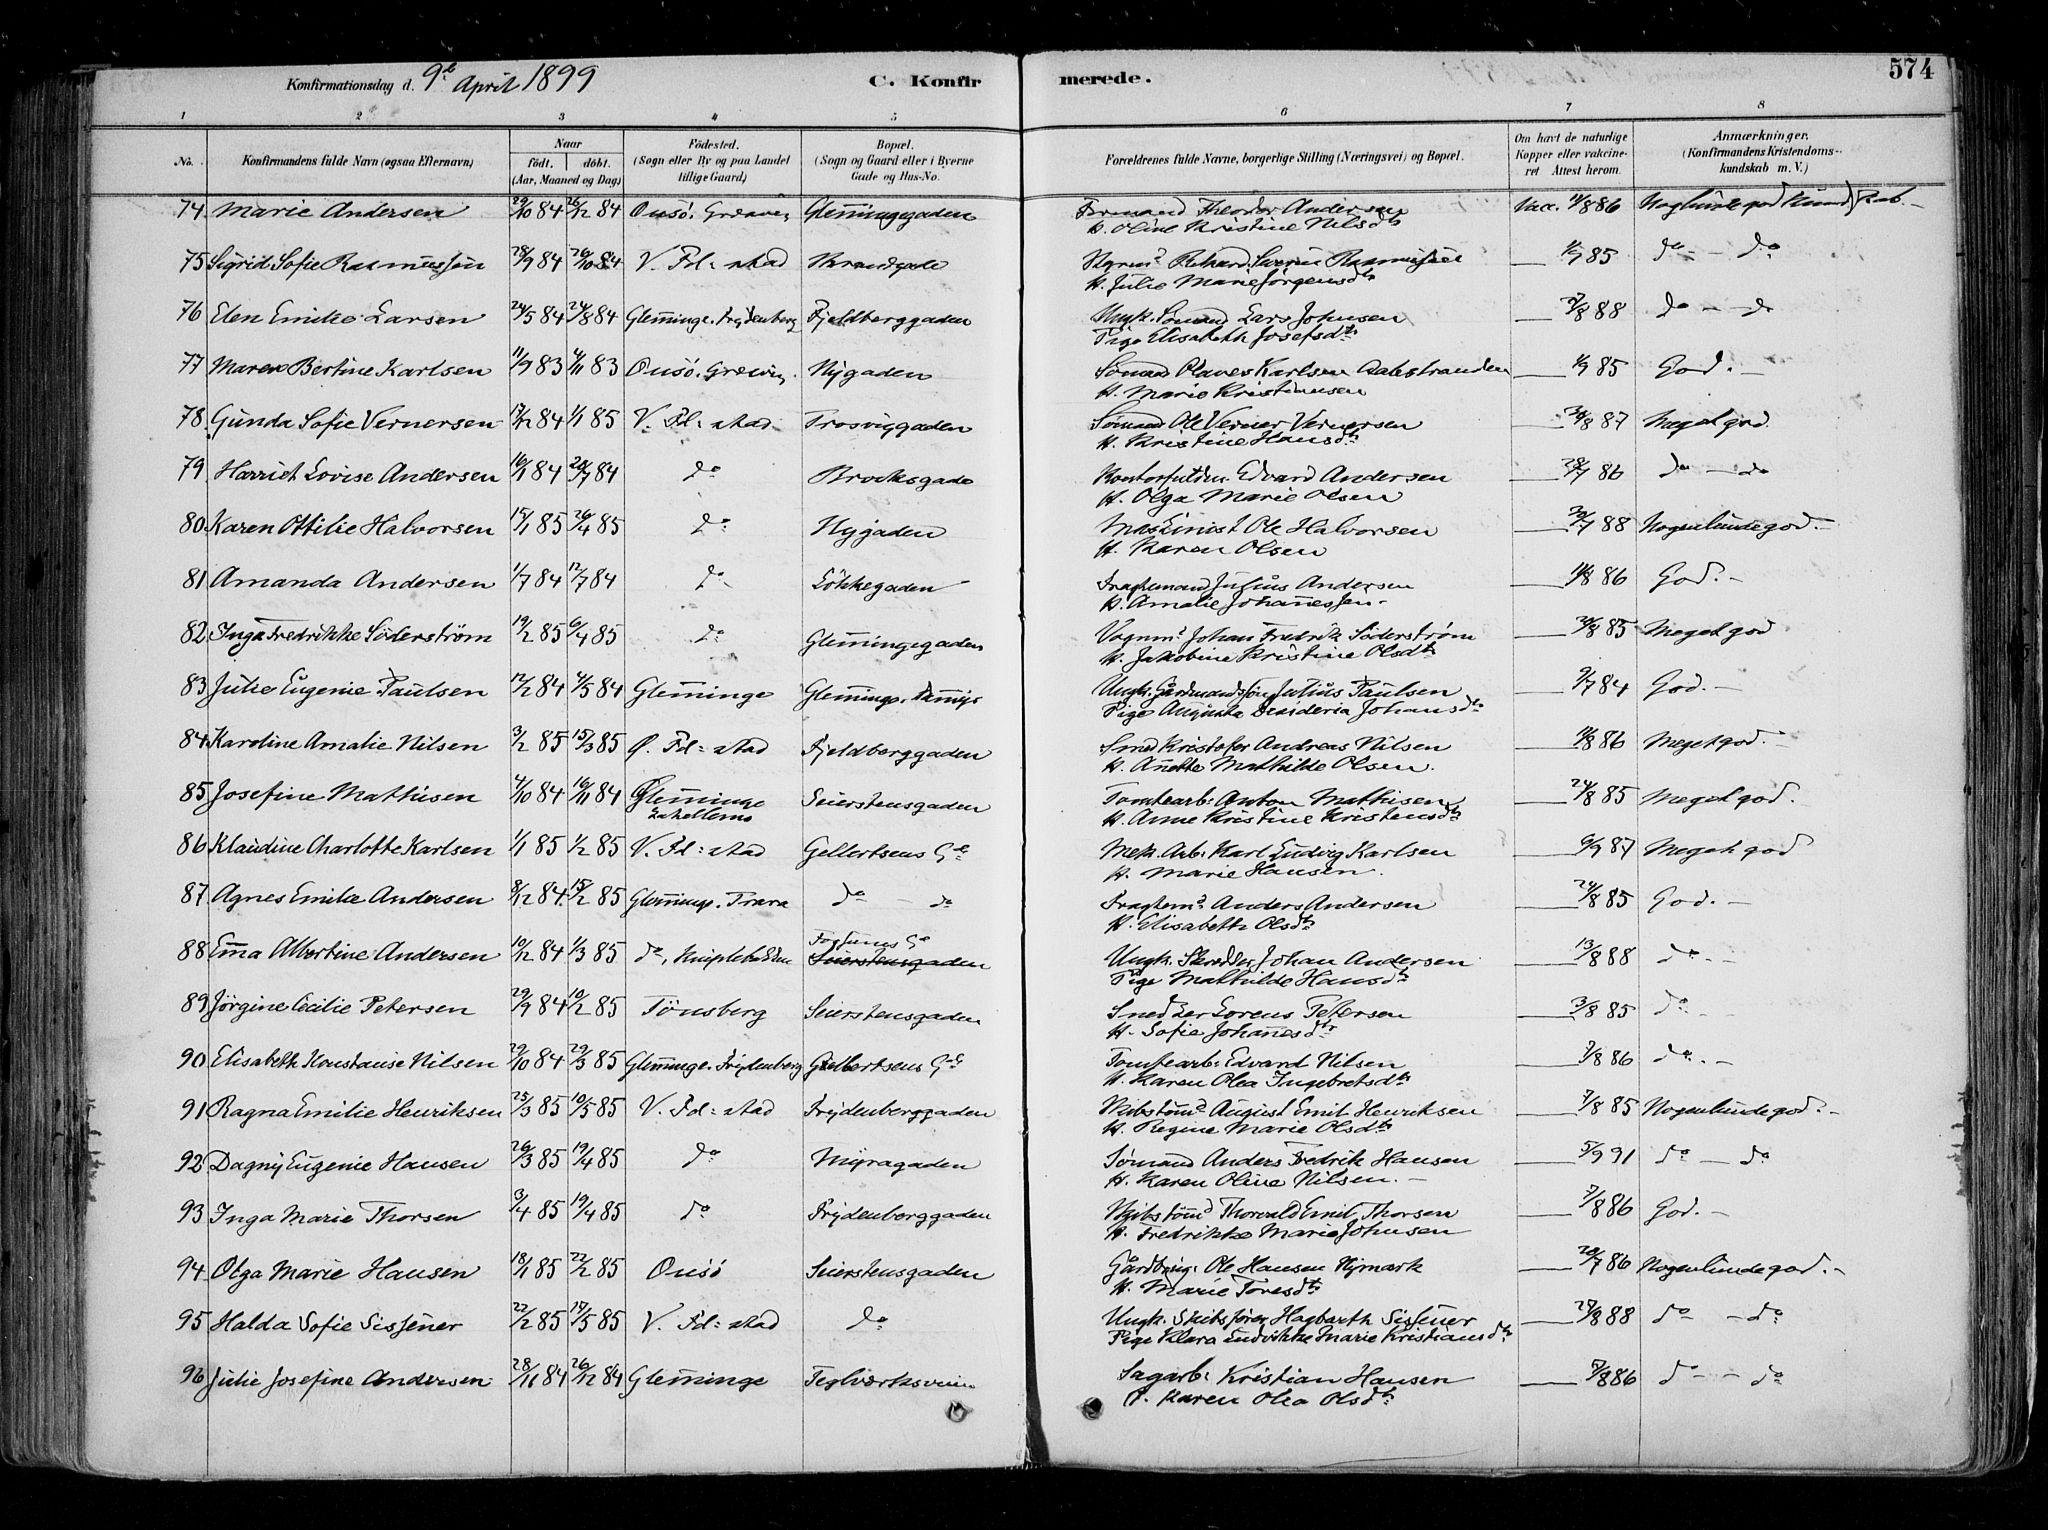 574
Konfirmationsdag d. 9de April 1899 C. Konfirmerede.
1 2 3 4 5 6 7 8
No. Konfirmandens fulde Navn (ogsaa Efternavn) Naar født. døbt. (Aar, Maaned og Dag) Fødested. (Sogn eller By og paa Landet tillige Gaard) Bopæl. (Sogn og Gaard eller i Byerne Gade og Hus-No. Forældrenes fulde Navne, borgerlige Stilling (Næringsvei) og Bopæl. Om havt de naturlige Kopper eller vaccineret Attest herom. Anmærkninger. (Konfirmandens Kristendomskundskab m. V.)
74 Marie Andersen 29/10 84 26/12 84 Onsø. Glemmingegaden Formand Theodor Andersen Vacc. 11/8 86
H. Oline Kristine Nilsdtr
75 Sigrid Sofie Rasmussen 28/9 84 26/10 84 V. Fd=stad Strandgade Rasmussen 1/9 85 do - do
H. Julie Marie Jørgensdtr
76 Elen Emilie Larsen 24/5 84 24/8 84 Glemminge. Frydenberg Fjeldberggaden Ungk. Sømand Lars Johnsen 27/8 88 do - do
Pige Elisabeth Josefsdtr
77 Maren Bertine Karlsen 11/9 83 4/11 83 Onsø. Nygaden Sømand Olaves Karlsen Aalestranden 1/9 85 God. -
H. Marie Kristensen
78 Gunda Sofie Vernersen 17/12 84 1/1 85 V. Fd=stad Trosviggaden Sømand Ole Verner Vernersen 30/8 87 Meget god
H. Kristine Hansdtr
79 Harriet Lovise Andersen 16/1 84 20/7 84 do Brochsgade Edvard Andersen 28/7 86 do - do
H. Olga Marie Olsen
80 Karen Ottilie Halvorsen 15/1 85 26/4 85 do Nygaden Maskinist Ole Halvorsen 30/7 88 Nogenlunde god. -
H. Karen Olsen
81 Amanda Andersen 1/7 84 12/7 84 do Løkkegaden Fragtemand Julius Andersen 11/8 86 God. -
H. Amalie Johannessen. -
82 Inga Fredrikke Söderstrøm 19/2 85 6/4 85 do Glemmingegaden Vognmd Johan Fredrik Söderstrøm 31/8 85 Meget god
H. Jakobine Kristine Olsdtr
83 Julie Eugenie Paulsen 12/2 84 4/5 84 Glemminge Glemminge. Ungk. Gårdmandssøn Julius Paulsen 9/7 84 God. -
Pige Augusta Desideria Johansdtr
84 Karoline Amalie Nilsen 3/2 85 15/3 85 Ø. Fd=stad Fjeldberggaden Smed Kristofer Andreas Nilsen 11/8 86 Meget god. -
H. Anette Mathilde Olsen.
85 Josefine Mathisen 4/10 84 16/11 84 Glemminge Seierstensgaden Tomtearb: Anton Mathisen 24/8 85 Meget god.
H. Anne Kristine Kristensdtr
86 Klaudine Charlotte Karlsen 1/1 85 1/2 85 V. Fd=stad Gellertsens Gd Mek. Arb: Karl Ludvig Karlsen 6/9 87 Meget god
H. Marie Hansen.
87 Agnes Emilie Andersen 8/12 84 15/2 85 Glemminge. Trara do - do Fragtemd Anders Andersen 24/8 85 God. -
H. Elisabeth Olsdtr
88 Emma Albertine Andersen 10/12 84 1/3 85 do, Seierstensgaden Ungk. Skredder Johan Andersen 13/8 88 do -
Pige Mathilde Hansdtr
89 Jørgine Cecilie Petersen 29/9 84 10/2 85 Tønsberg Seierstensgaden Snedker Lorens Pettersen 3/8 85 do -
H. Sofie Johanesdtr
90 Elisabeth Konstanse Nilsen 29/10 84 29/3 85 Glemminge. Frydenberg Gellertsens Gd Tomtearb: Edvard Nilsen 7/8 86 do. -
H. Karen Olea Ingebretsdtr
91 Ragna Emilie Henriksen 25/3 85 10/5 85 V. Fd=stad Frydenberggaden Skibstømd August Emil Henriksen 7/8 85 Nogenlunde god. -
H. Regine Marie Olsdtr
92 Dagny Eugenie Hansen 26/3 85 19/4 85 do Myragaden Sømand Anders Fredrik Hansen 5/9 91 do - do
H. Karen Oline Nilsen. -
93 Inga Marie Thorsen 3/4 85 19/4 85 do Frydenberggaden Skibstømd Thorvald Emil Thorsen 7/8 86 God. -
H. Fredrikke Marie Johnsen
94 Olga Marie Hansen 18/1 85 22/2 85 Onsø Seierstensgaden Gårdbrug: Ole Hansen Nymark 20/7 86 Nogenlunde god. -
H. Marie Toresdtr
95 Halda Sofie Sissener 22/2 85 17/5 85 V. Fd=stad do Ungk. Skibsfører Hagbarth Sissener 27/8 88 do - do
Pige Klara Ludvikke Marie Kristiansdtr
96 Julie Josefine Andersen 28/11 84 26/12 84 Glemminge Teglværksveien Sagarb: Kristian Hansen 7/8 86 do - do
H. Karen Olea Olsdtr